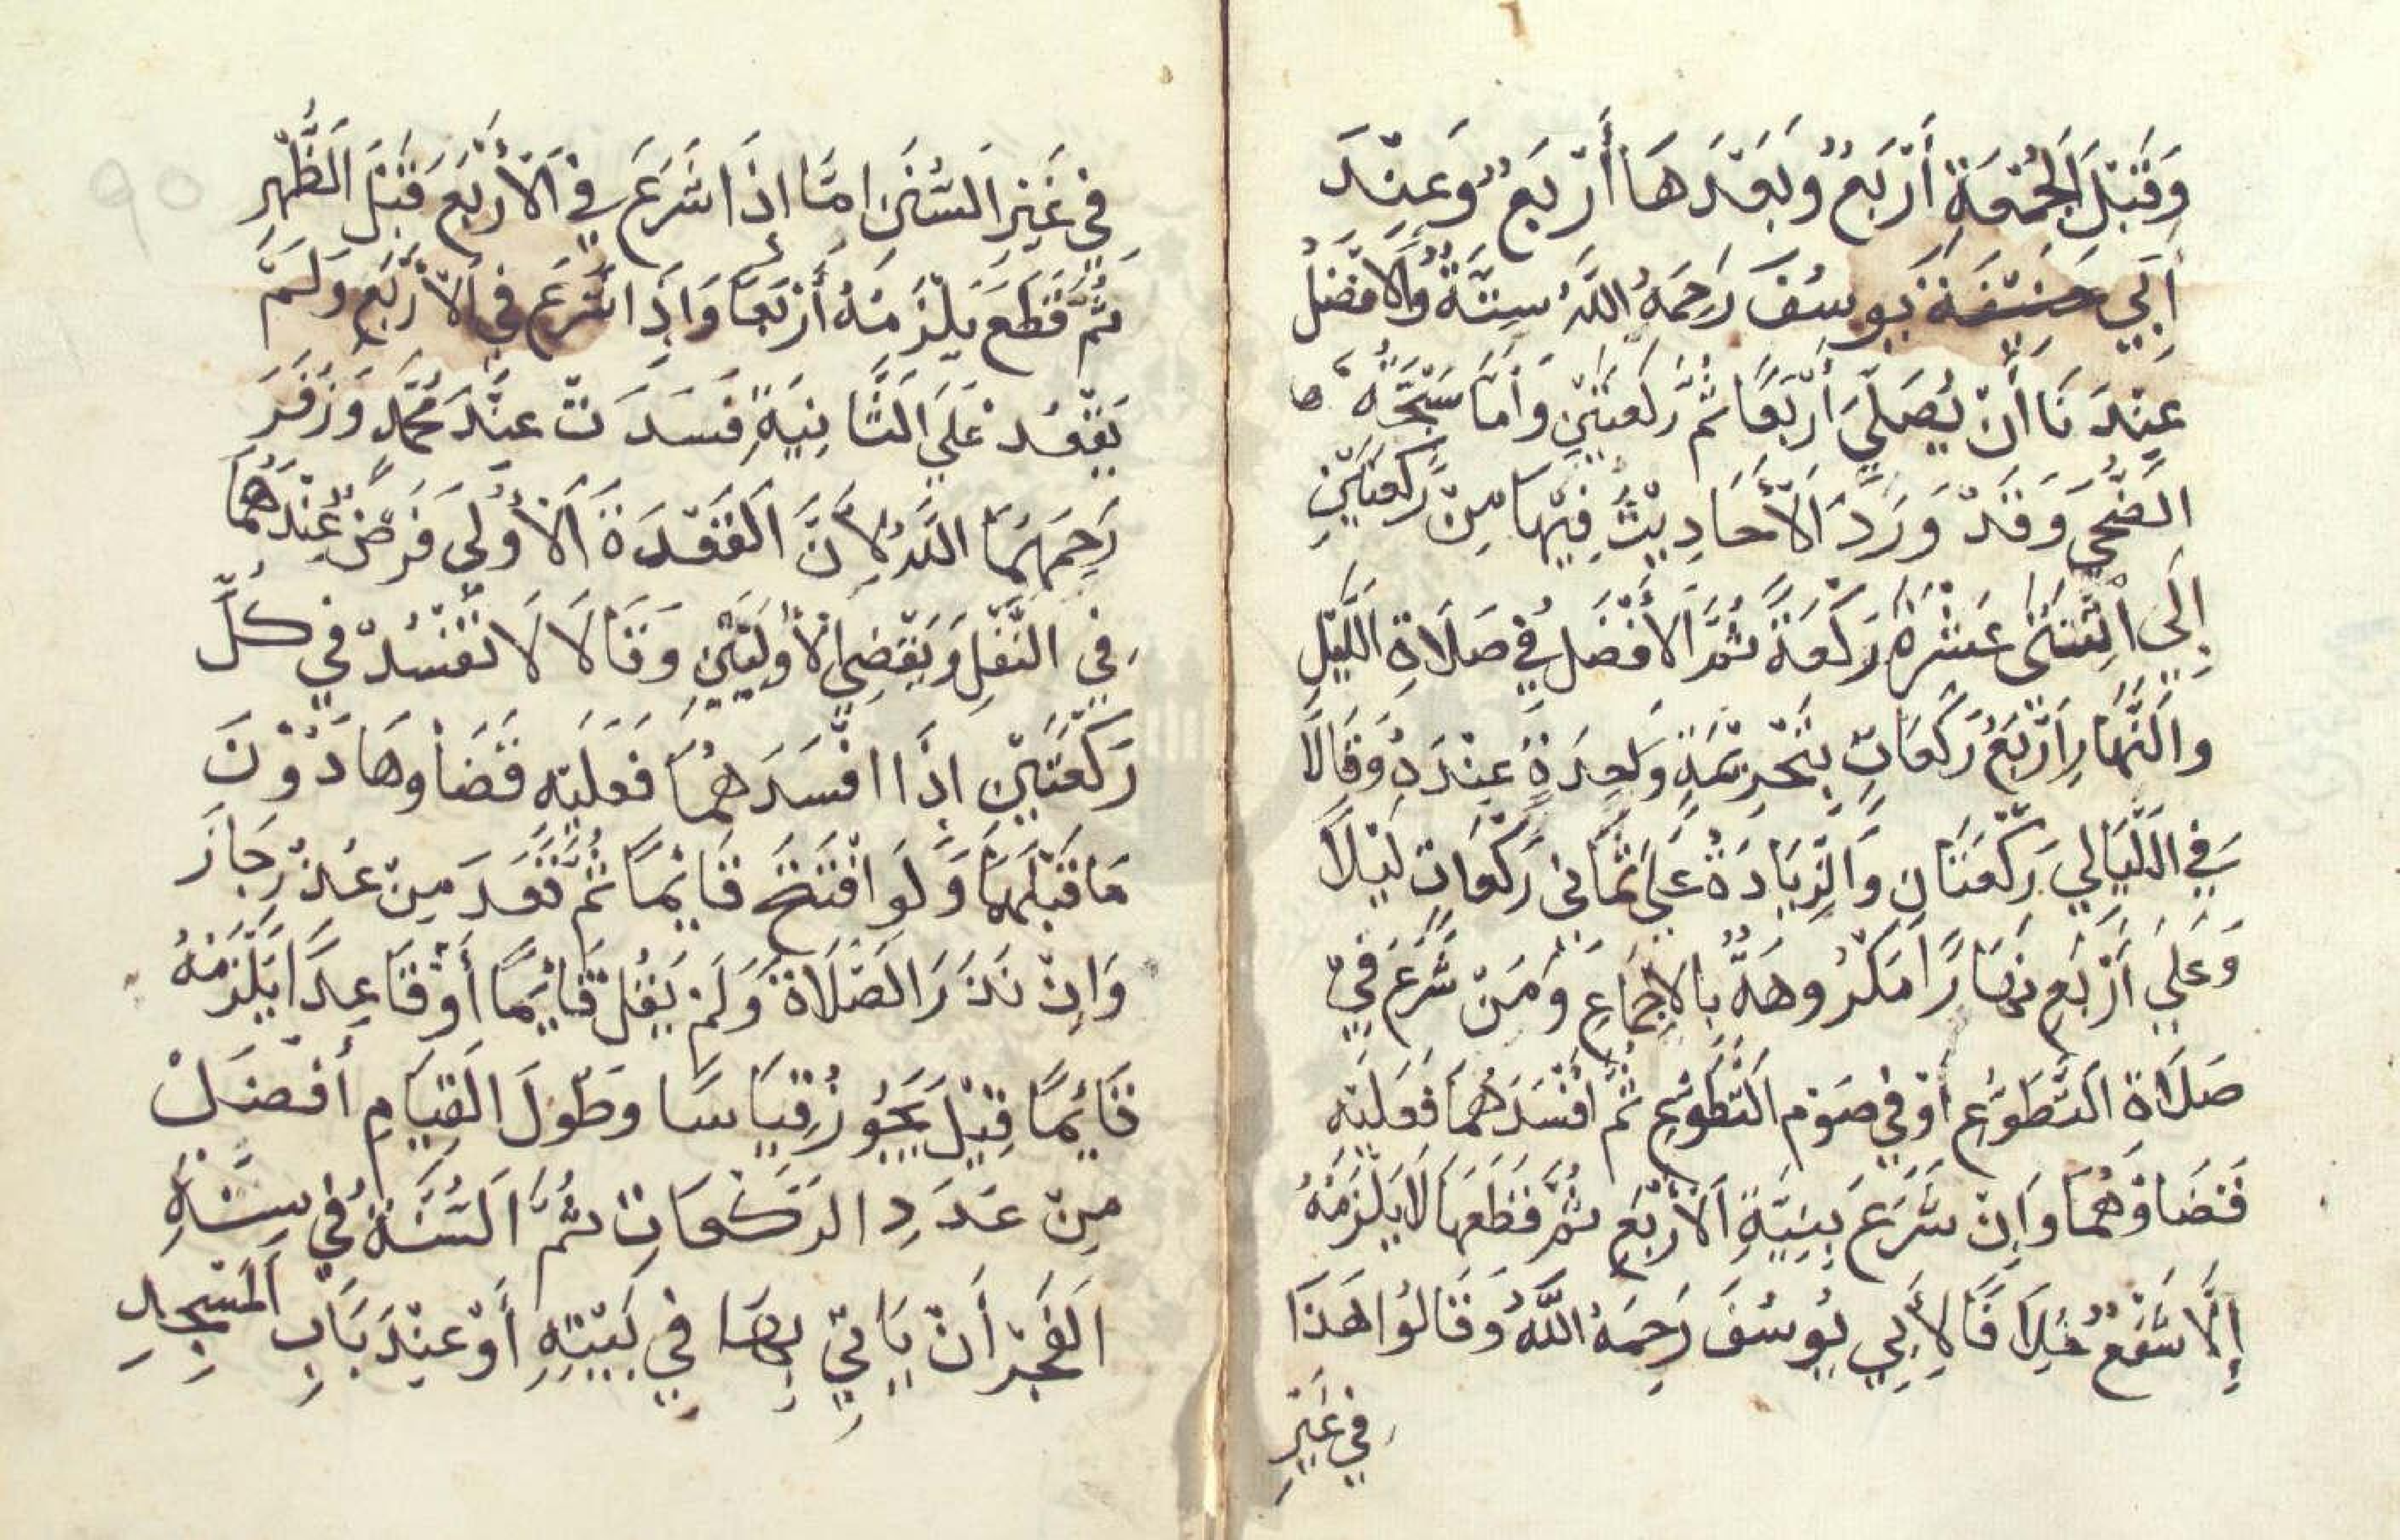 وَقَبْلَ الْجُمُعَةِ أَرْبَعٌ وَبَعْدَهَا أَرْبَعٌ وَعِنْدَ
أَبِي حنيفة يوسُفَ رَحِمَهُ اللهُ سِتَّةٌ وَالأَفْضَلُ
عِنْدَنَا أَنْ يُصَلِّيَ أَرْبَعًا ثُمَّ رَكْعَتَيْنِ وَأَمَّا سُبْحَةُ
الضُّحَي وَقَدْ وَرَدَ الأَحَادِيْثُ فِيْهَا مِنْ رَكْعَتَيْنِ
إِلَيَ اثْنَتَىْ عَشْرَةَ رَكْعَةً ثُمَّ الأَفْضَلُ فِي صَلَاةِ اللَّيْلِ
وَالنَّهَارِ أَرْبَعُ رَكَعَاتٍ بِتَحْرِيْمَةٍ وَاحِدَةٍ عِنْدَهُ وَقَالَا
فِي اللَّيَالِي رَكْعَتَانِ وَالزِّيَادَةُ عَلَي ثَمَانِي رَكَعَاتٍ لَيْلًا
وَعَلَي أَرْبَعٍ نَهَارًا مَكْرُوهَةٌ بِالإِجْمَاعِ وَمَنْ شَرَعَ فِي
صَلَاةِ التَّطَوُّعِ أَوْ فِي صَوْمِ التَّطَوُّعِ ثُمَّ أَفْسَدَهُمَا فَعَلَيْهِ
قَضَاؤُهُمَا وَاِنْ شَرَعَ بِنِيَّةِ الأَرْبَعِ ثُمَّ قَطَعَهَا لَا يَلْزَمُهُ
إِلَّا شَفْعٌ خِلَافًا لِأَبِي يُوسُفَ رَحِمَهُ اللَّهُ وَقَالُوا هَذَا
فِي غَيْرِ
فِي غَيْرِ السُّنَنِ امَّا اِذَا شَرَعَ فِي الأَرْبَعِ قَبْلَ الظُّهْرِ
ثُمَّ قَطَعَ يَلْزَمُهُ أَرْبَعًا وَاِذَا شَرَعَ فِي الأَرْبَعِ وَلَمْ
يَقْعُدْ عَلَي الثَّانِيَةِ فَسَدَتْ عِنْدَ مُحَمَّدٍ وَزُفَرَ
رَحِمَهُمَا اللَّهُ لِاَنَّ الْقَعْدَةَ الأُوْلَي فَرْضٌ عِنْدَهُمَا
فِي النَّفْلِ وَيَقْضِي الأُولَيَيْنِ وَقَالَا لَا تَفْسُدْ فِي كُلِّ
رَكْعَتَيْنِ اِذَا افْسَدَهُمَا فَعَلَيْهِ قَضَاوهَا دُوْنَ
مَا قَبْلَهَا وَلَوِ افْتَتَحَ قَائِمًا ثُمَّ قَعَدَ مِنْ عُذْرٍ جَازَ
وَاِنْ نَذَرَ الصَّلَاةَ وَلَمْ يَقُلْ قَائِمًا أَوْ قَاعِدًا يَلْزَمُهُ
قَائِمًا قِيْلَ يَجُوزُ قِيَاسًا وَطُولَ الْقِيَامِ أَفْضَلُ
مِنْ عَدَدِ الرَّكَعَاتِ ثُمَّ السُّنَّةُ فِي سِنَّةِ
الْفَجْرِ أَنْ يَاتِيَ بِهَا فِي بَيْتِهِ أَوْ عِنْدَ بَابِ الْمَسْجِدِ